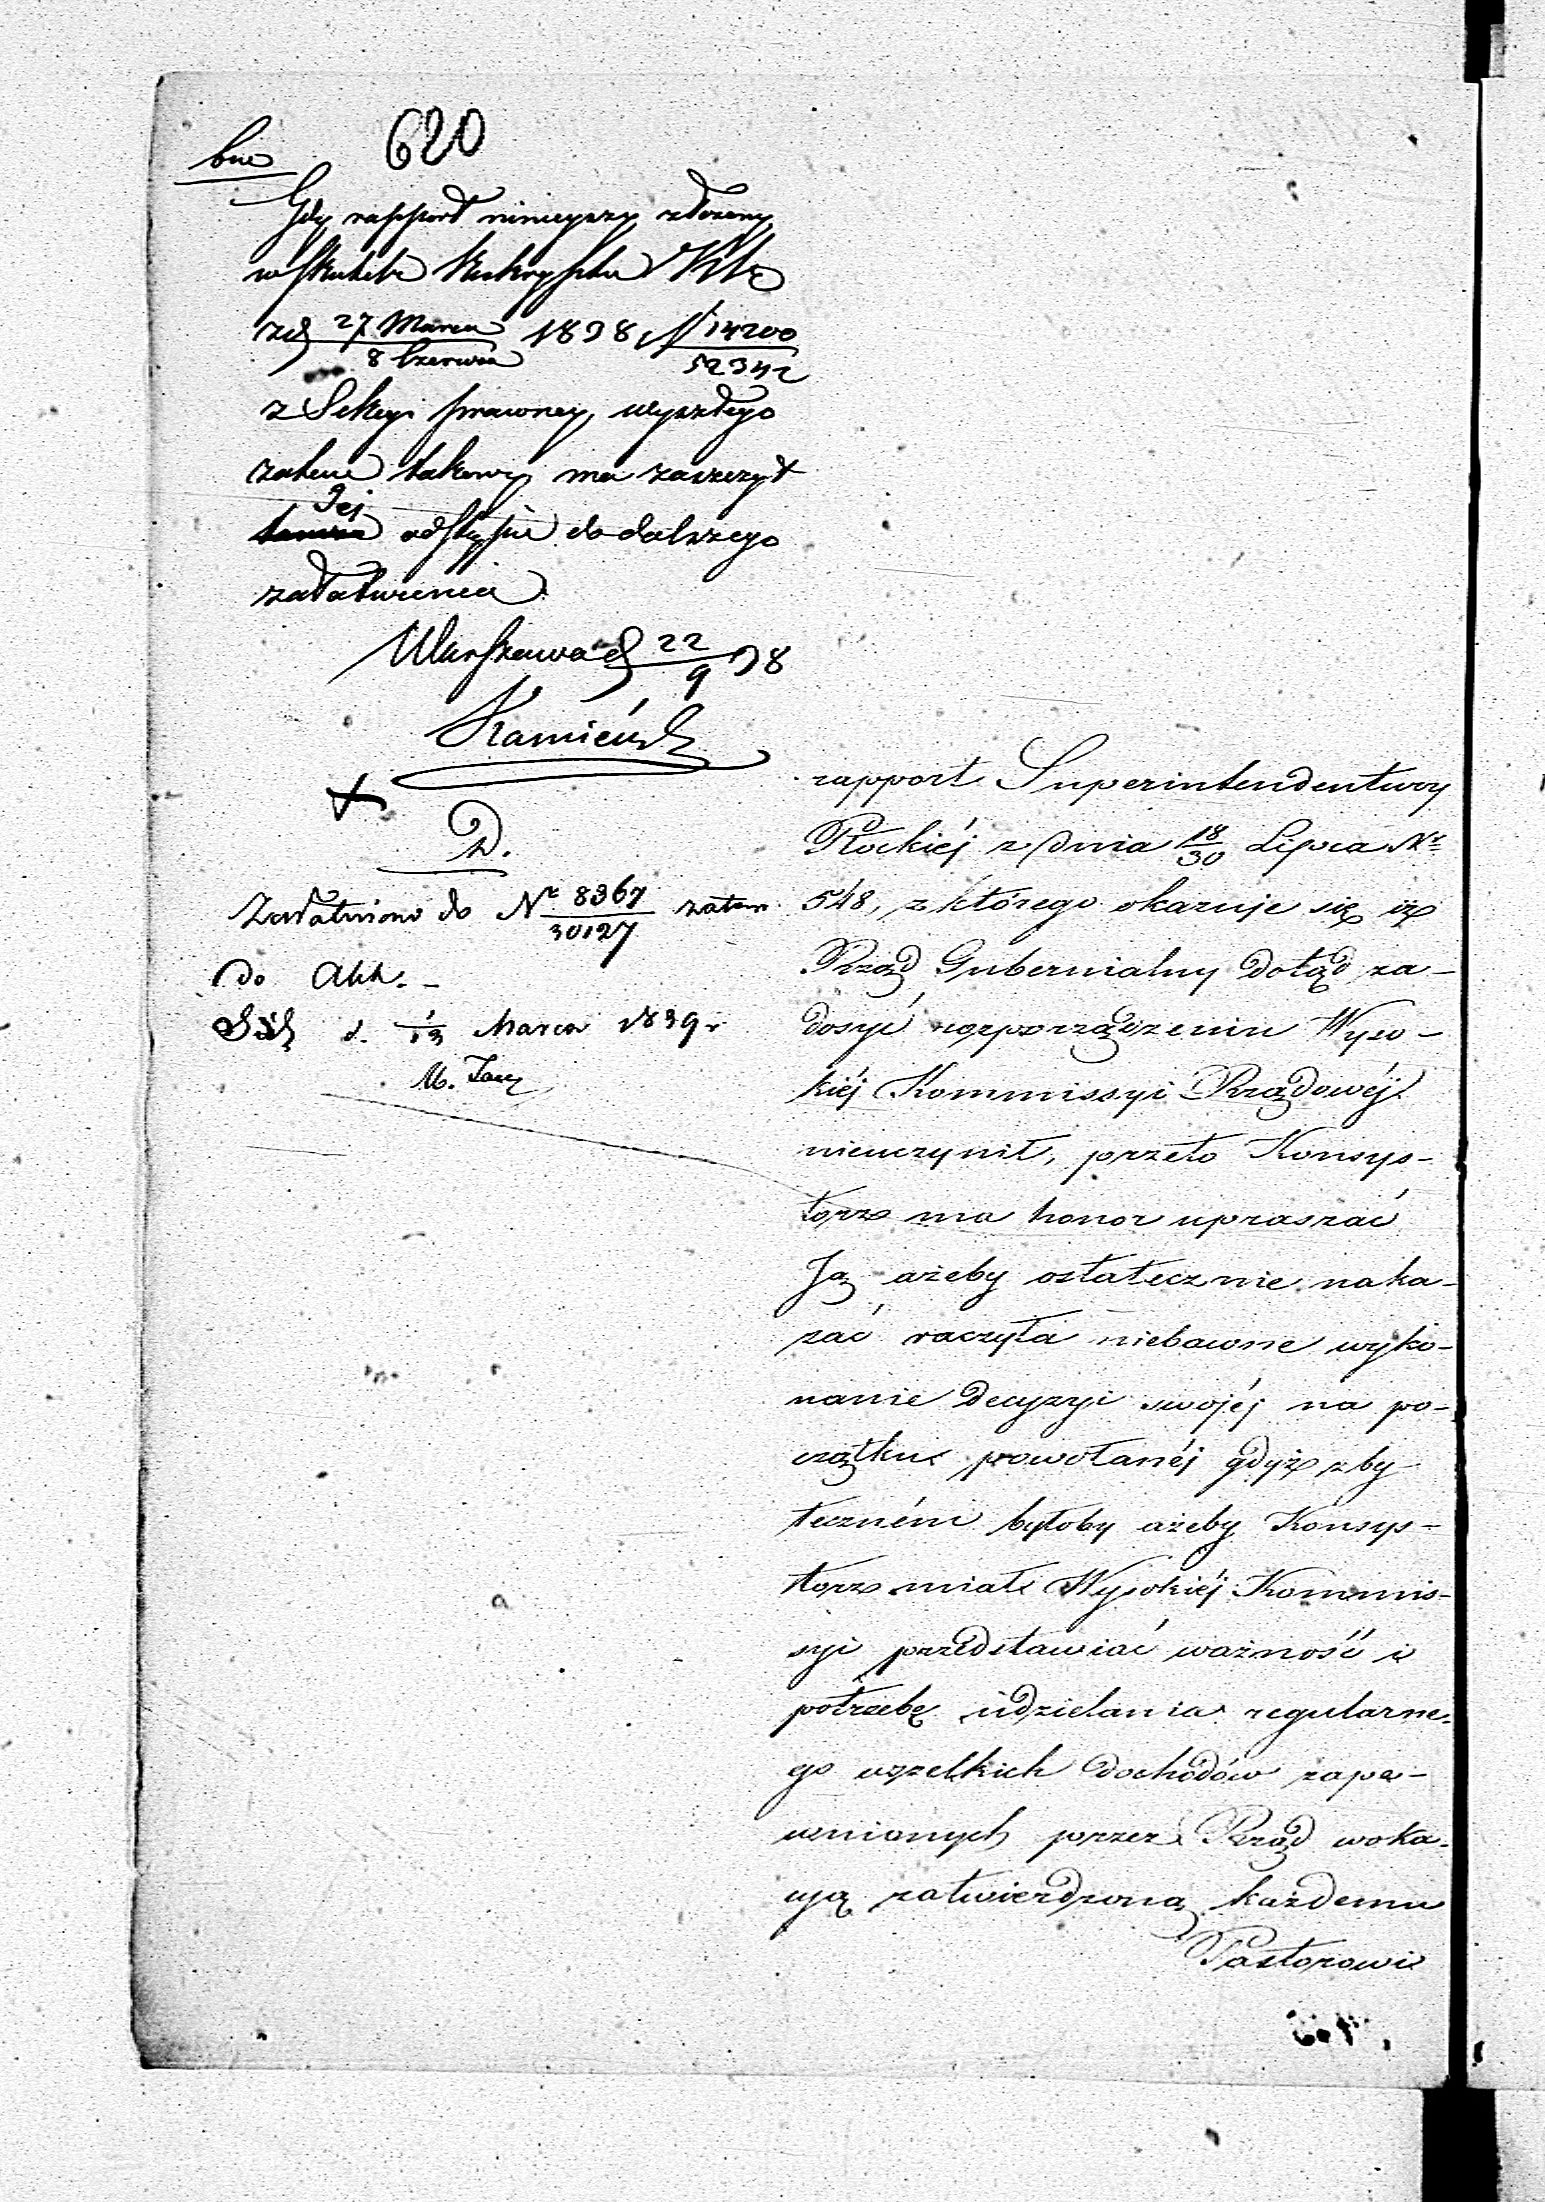 620
Gdy rapport ninieyszy złożony
w skutek Reskryptu
z d 27 Marca / 8 Czerwca 1838 N 14200 / 52342
z Sekcyi prawney wyszłego
zatem takowy ma zaszczyt
Jej odstąpić do dalszego
załatwienia
Warszawa d 22/9 38
Kamieński
D.
Załatwiono do Nr 8367 / 30127 zatem
do Akt. –
d. 1/13 Marca 1839 r
rapport Superintendentury
Płockiéj z dnia 18/30 Lipca Nr
548, z którego okazuje się iż
Rząd Gubernialny dotąd za-
dosyć rozporządzeniu Wyso-
kiéj Kommissyi Rządowéj
nieuczynił, przeto Konsys-
torz ma honor upraszać
Ją ażeby ostatecznie naka-
zać raczyła niebawne wyko-
nanie decyzyi swojéj na po-
czątku powołanéj gdyż zby
teczném byłoby ażeby Konsys-
torz miał Wysokiéj Kommis-
syi przedstawiać ważność i
potrzebę udzielania regularne-
go wszelkich dochodów zape-
wnionych przez Rząd woka-
cyą zatwierdzoną każdemu
Pastorowi